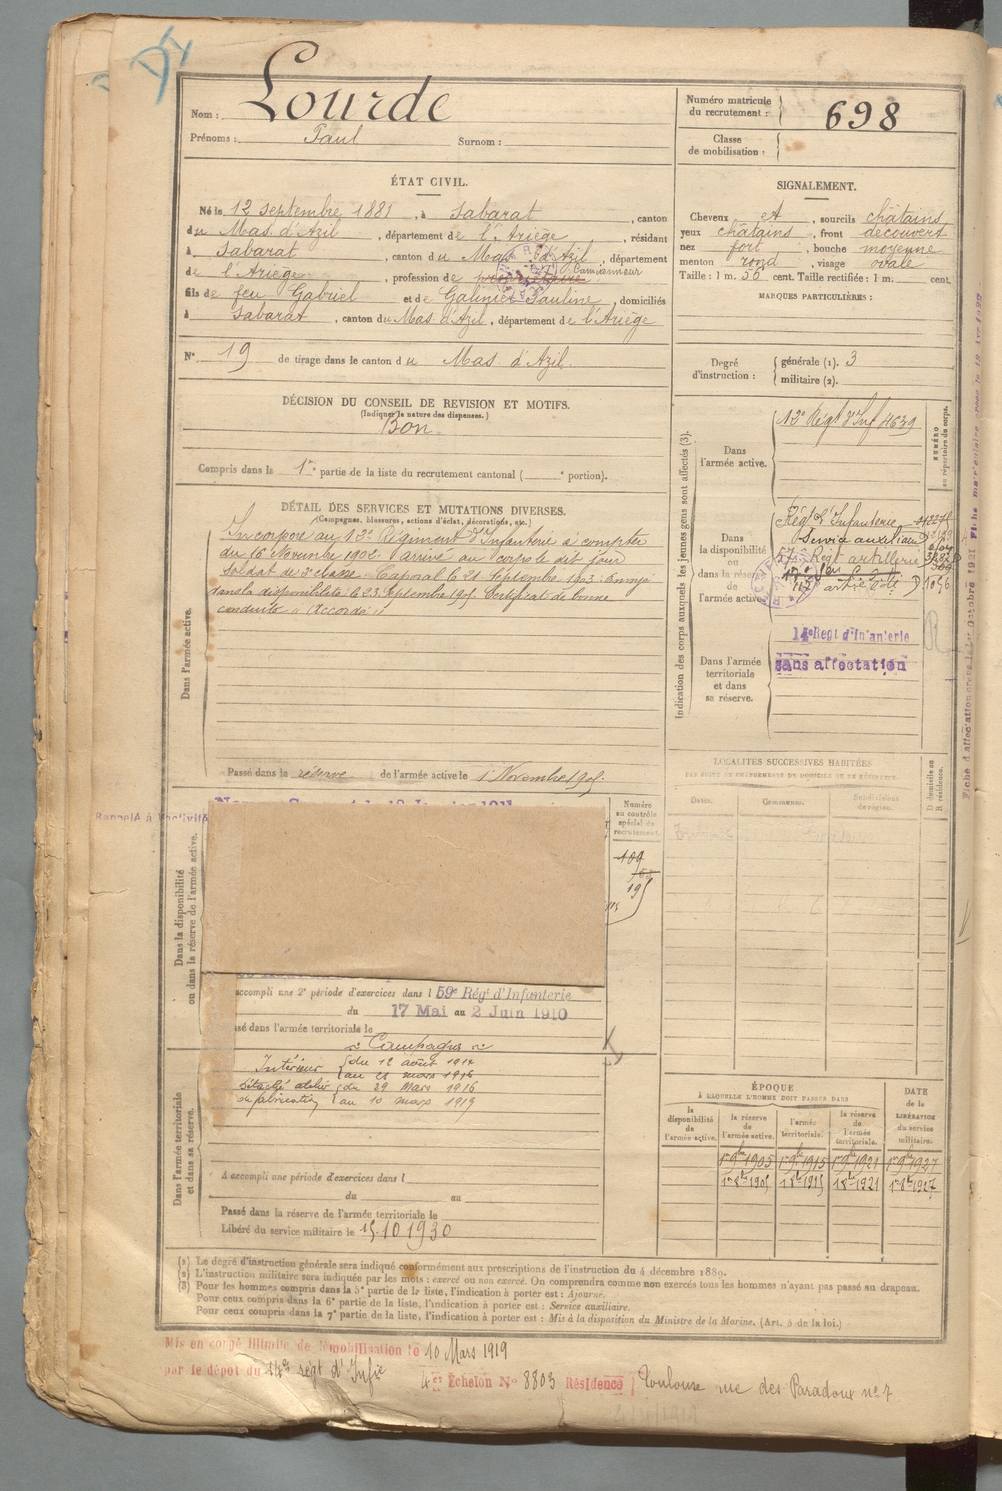 Nom : Lourde
Prénoms : Paul Surnom :
Numéro matricule
du recrutement : 698
Classe
de mobilisation :
ÉTAT CIVIL.
Né le 12 Septembre 1881, à Sabarat, canton
du Mas. d'Azil, département de l'Ariège, résidant
à Sabarat, canton du Mas d'Azil, département
de l'Ariège, profession de propriétaire Camionneur
fils de feu Gabriel et de Galinier Pauline, domiciliés
à Sabarat, canton du Mas d'Azil, département de l'Ariège
N° 19 de tirage dans le canton du Mas. d'Azil.
SIGNALEMENT.
Cheveux et, sourcils châtains
yeux châtains, front découvert
nez fort, bouche moyenne
menton rond, visage ovale
Taille : 1 m. 56 cent. Taille rectifiée : 1 m. cent.
MARQUES PARTICULIÈRES :
Degré
d'instruction :
générale (1). 3
militaire (2).
DÉCISION DU CONSEIL DE REVISION ET MOTIFS.
(Indiquer la nature des dispenses.)
Bon
Compris dans la 1re partie de la liste du recrutement cantonal ( e portion).
DÉTAIL DES SERVICES ET MUTATIONS DIVERSES.
(Campagnes, blessures, actions d'éclat, décorations, etc.)
Incorporé au 12e Régiment d'Infanterie à compter
du 16 Novembre 1902. Arrivé au corps le dit jour
Soldat de 2e classe. Caporal le 21 Septembre 1903. Envoyé
dans la disponibilité le 23 Septembre 1905 Certificat de bonne
conduite "Accordé"
Dans l'armée active.
Passé dans la réserve de l'armée active le 1 Novembre 1905.
Indication des corps auxquels les jeunes gens sont affectés (3).
NUMÉRO
au répertoire du corps.
Dans
l'armée active.
12e Régt d'Inf 4639
Dans
la disponibilité
ou
dans la réserve
de
l'armée active.
Régt d'Infanterie
Service auxiliaire
57e Régt artillerie
1056
Dans l'armée
territoriale
et dans
sa réserve.
14e Régt d'Infanterie
sans affectation
LOCALITÉS SUCCESSIVES HABITÉES
PAR SUITE DE CHANGEMENTS DE DOMICILE OU DE RÉSIDENCE.
Dates.
Communes.
Subdivisions
de région.
D domicile ou
R résidence.
Rappelé à l'activité
Numéro
au contrôle
spécial du
recrutement.
109
195
Dans la disponibilité
ou dans la réserve de l'armée active.
accompli une 2e période d'exercices dans l 59e Régt d'Infanterie
du 17 Mai au 2 Juin 1910
ssé dans l'armée territoriale le
Campagnes
Intérieur du 12 août 1914
au 28 mars 1916
Détaché atelier du 29 Mars 1916
de fabrication au 10 mars 1919
Dans l'armée territoriale
et dans sa réserve.
A accompli une période d'exercices dans l
du au
Passé dans la réserve de l'armée territoriale le
Libéré du service militaire le 15.10 1930
ÉPOQUE
À LAQUELLE L'HOMME DOIT PASSER DANS
la
disponibilité
de
l'armée active.
la réserve
de
l'armée active.
l'armée
territoriale.
la réserve
de
l'armée
territoriale.
DATE
de la
LIBÉRATION
du service
militaire.
1r 9bre 1905 1r 9bre 1915 1r 9bre 1921 1r 9bre 1927
1r 8b 1905 1 8b 1915 1 8b 1921 1r 8b 1927
(1) Le degré d'instruction générale sera indiqué conformément aux prescriptions de l'instruction du 4 décembre 1889.
(2) L'instruction militaire sera indiquée par les mots : exercé ou non exercé. On comprendra comme non exercés tous les hommes n'ayant pas passé au drapeau.
(3) Pour les hommes compris dans la 5e partie de la liste, l'indication à porter est : Ajourné.
Pour ceux compris dans la 6e partie de la liste, l'indication à porter est : Service auxiliaire.
Pour ceux compris dans la 7e partie de la liste, l'indication à porter est : Mis à la disposition du Ministre de la Marine. (Art. 4 de la loi.)
Mis en congé illimité de démobilisation le 10 Mars 1919
par le dépôt du 14e régt d'Infie
4er Échelon N° 8803 Résidence Toulouse rue des Paradoux n° 7